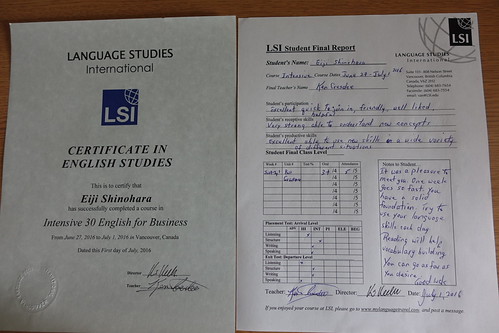 LANGUAGE STUDIES
International
LSI
CERTIFICATE IN
ENGLISH STUDIES
This is to certify that
Eiji Shinohara
has successfully completed a course in
Intensive 30 English for Business
From June 27, 2016 to July 1, 2016 in Vancouver, Canada
Dated this First day of July, 2016
Director
Teacher
LSI
LSI Student Final Report
LANGUAGE STUDIES
INTERNATIONAL
Student's Name: Eiji Shinohara
Course Intensive Course Dates June 27 - July 1
Final Teacher's Name Ken
Student's participation
Excellent quick to join in, friendly, well liked
helpful
Student's receptive skills
Very strong able to understand new concepts
Student's productive skills
Excellent able to use new skills in a wide variety
of different situations
Student Final Class Level
Week # Unit # Test % Oral Attendance
Notes to Student
It was a pleasure to
meet you. One week
goes so fast you
have a solid
foundation. Try to
use your language
skills each day.
Reading will help
vocabulary building.
You can go as far as
you desire.
Good luck
Placement Test: Arrival Level
HI INT FI ELE BEG
Listening
Structure
Writing
Speaking
Exit Test: Departure Level
Listening
Structure
Writing
Speaking
Teacher: Director: Date: July 1, 2016
If you enjoyed your course at LSI, please go to